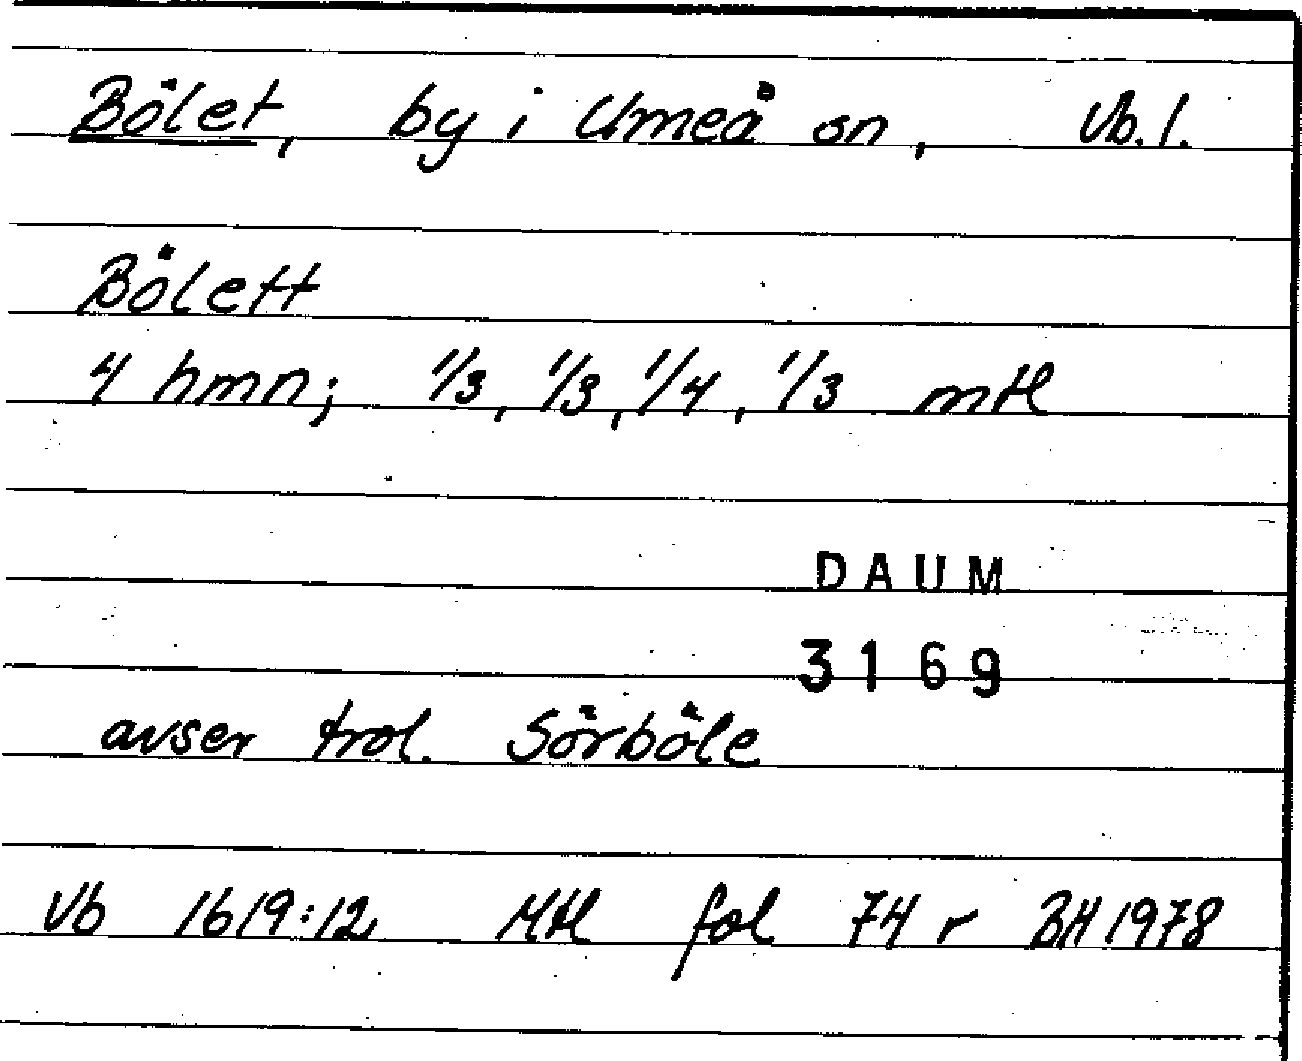 Bölet, by i Umeå sn, Vb. l.
Bölett
4 hmn; 1/3, 1/3, 1/4, 1/3 mtl
DAUM
3169
avser trol. Sörböle
Vb 1619:12 Mtl fol 74 r BH 1978